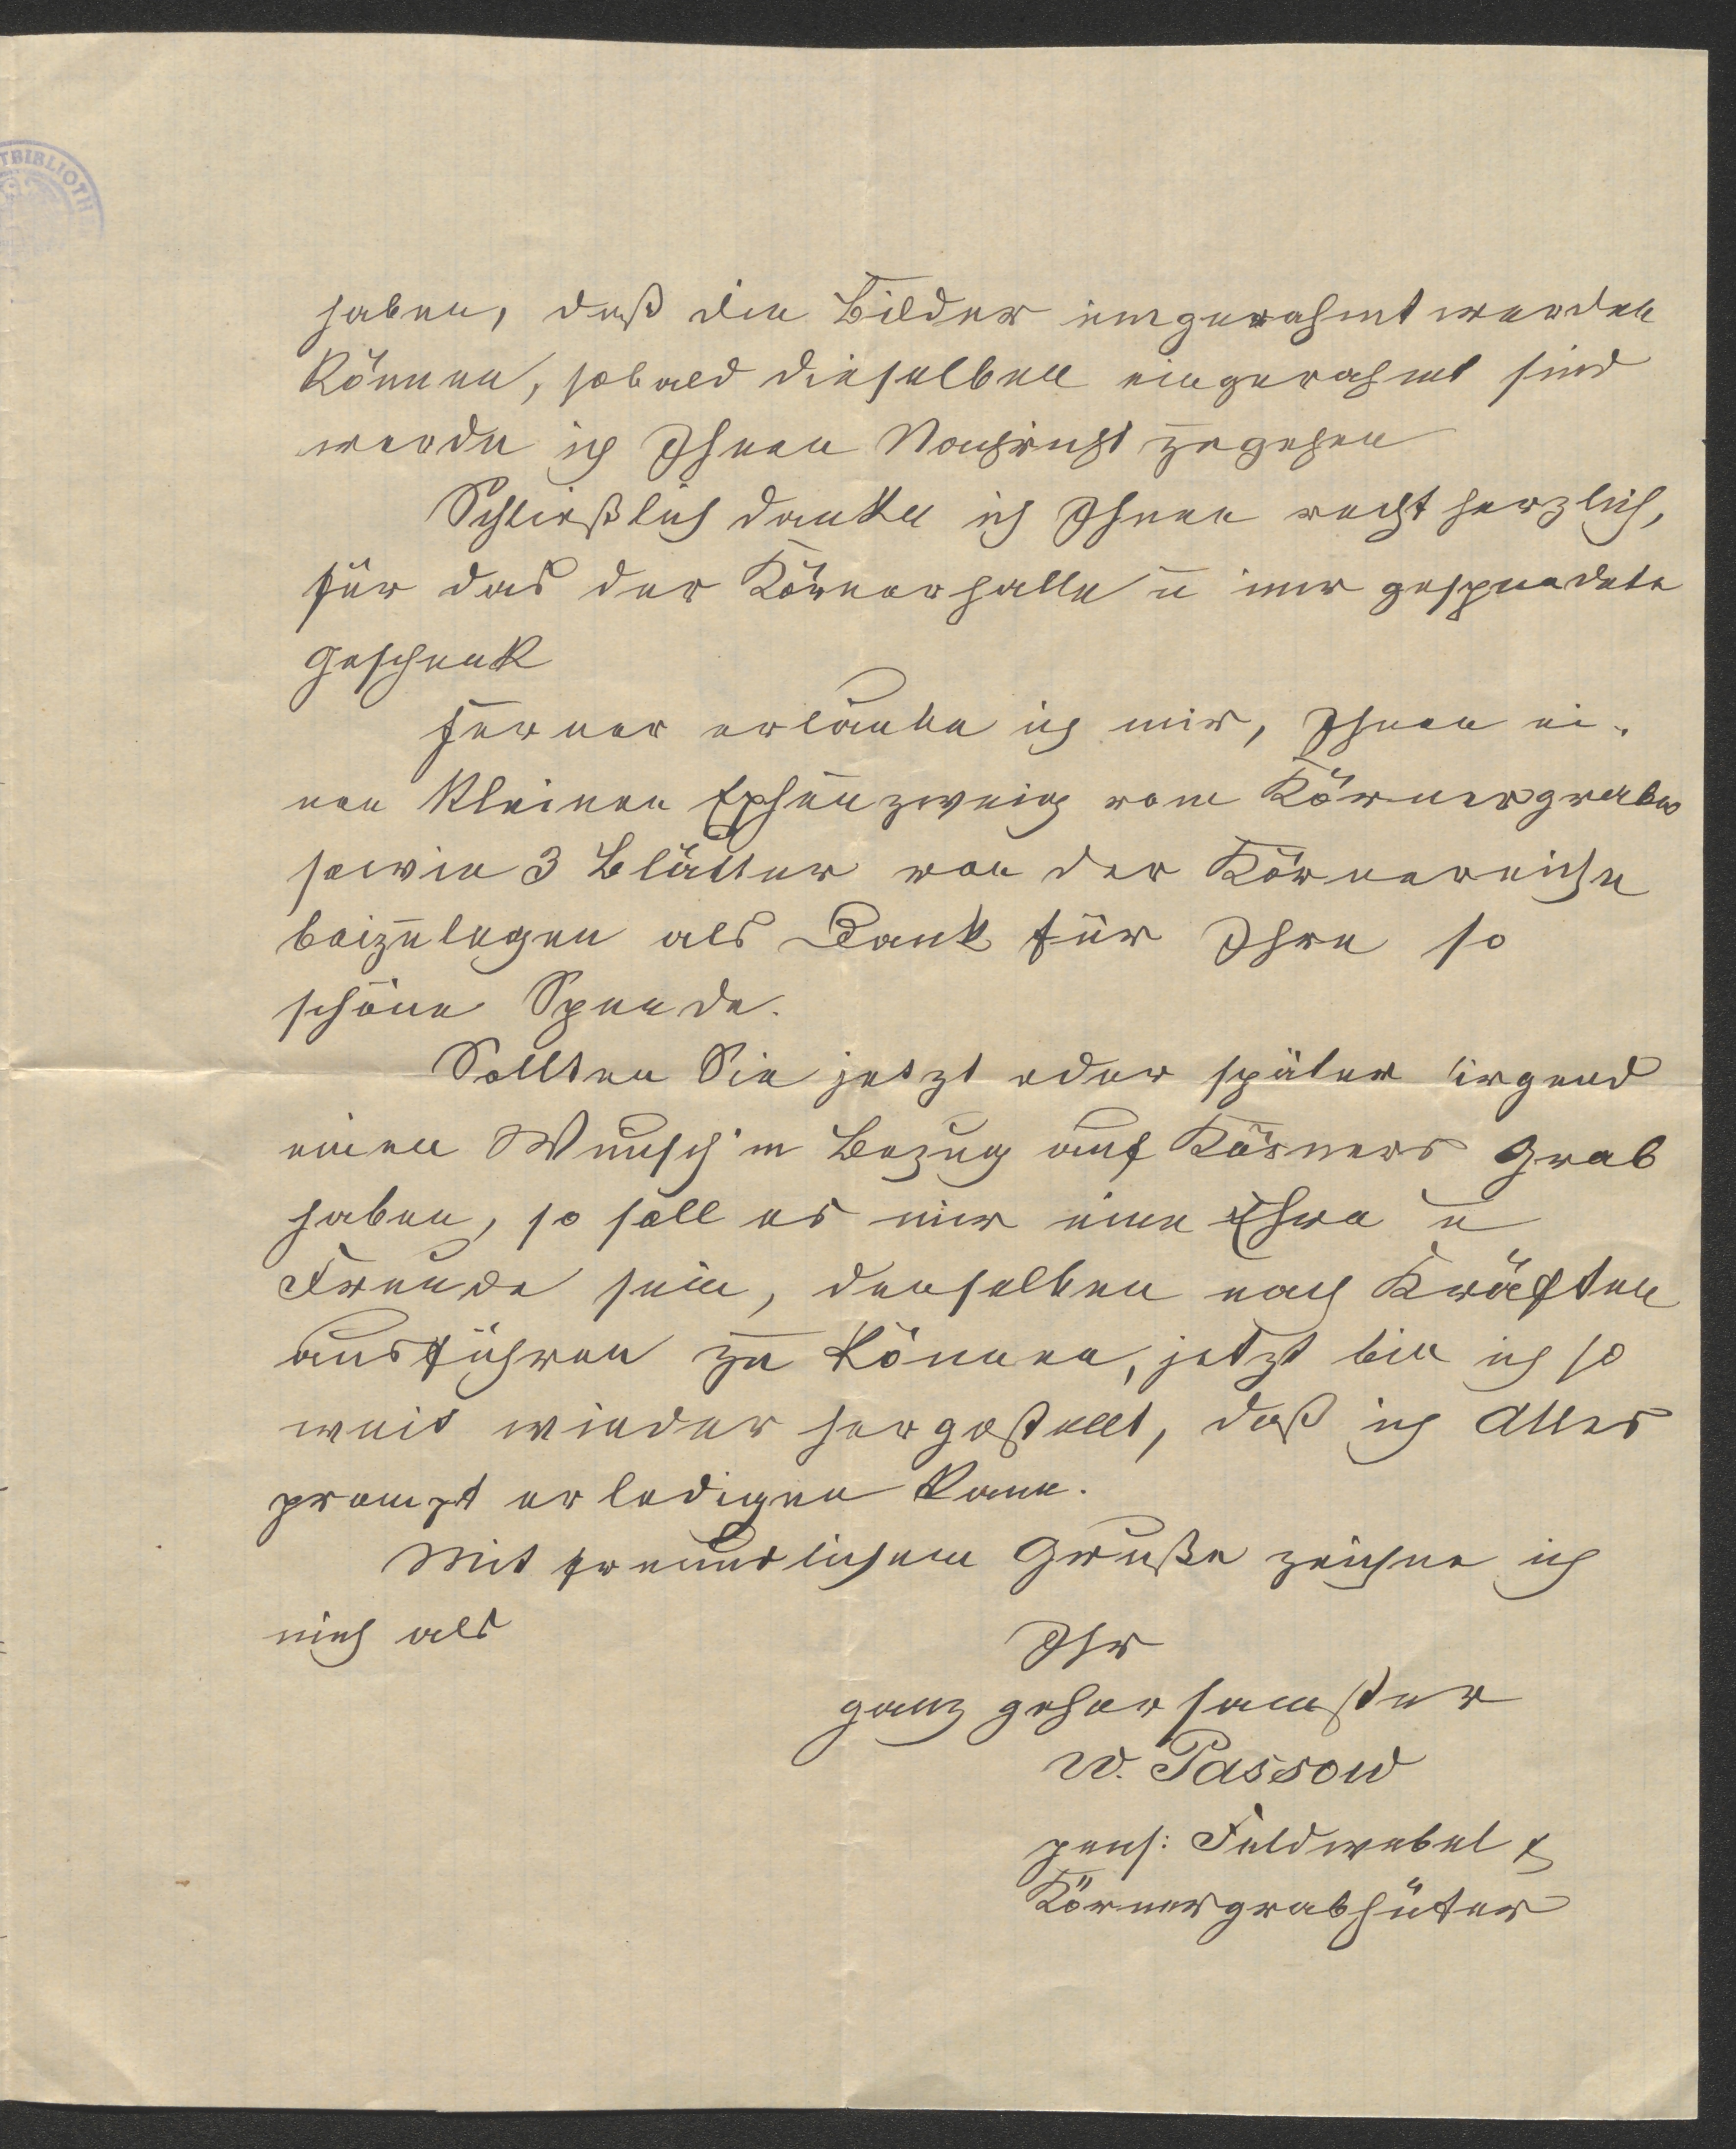 TBIBLIOTH
haben, daß die Bilder eingerahmt werden
können, sobald dieselben eingerahmt sind
werde ich Ihnen Nachricht zugehen
Schließlich danke ich Ihnen recht herzlich,
für das der Körnerhalle u mir gespendete
Geschenk
Ferner erlaube ich mir, Ihnen ei-
nen kleinen Epheuzweig vom Körnergrabe
sowie 3 Blätter von der Körnereiche
beizulegen als Dank für Ihre so
schöne Spende.
Sollten Sie jetzt oder später irgend
einen Wunsch in Bezug auf Körners Grab
haben, so soll es mir eine Ehre u
Freude sein, denselben nach Kräften
ausführen zu können, jetzt bin ich so
weit wieder hergestellt, daß ich Alles
prompt erledigen kann.
Mit freundlichem Gruße zeichne ich
mich als
Ihr
ganz gehorsamster
W. Passow
pens: Feldwebel &
Körnergrabhüter